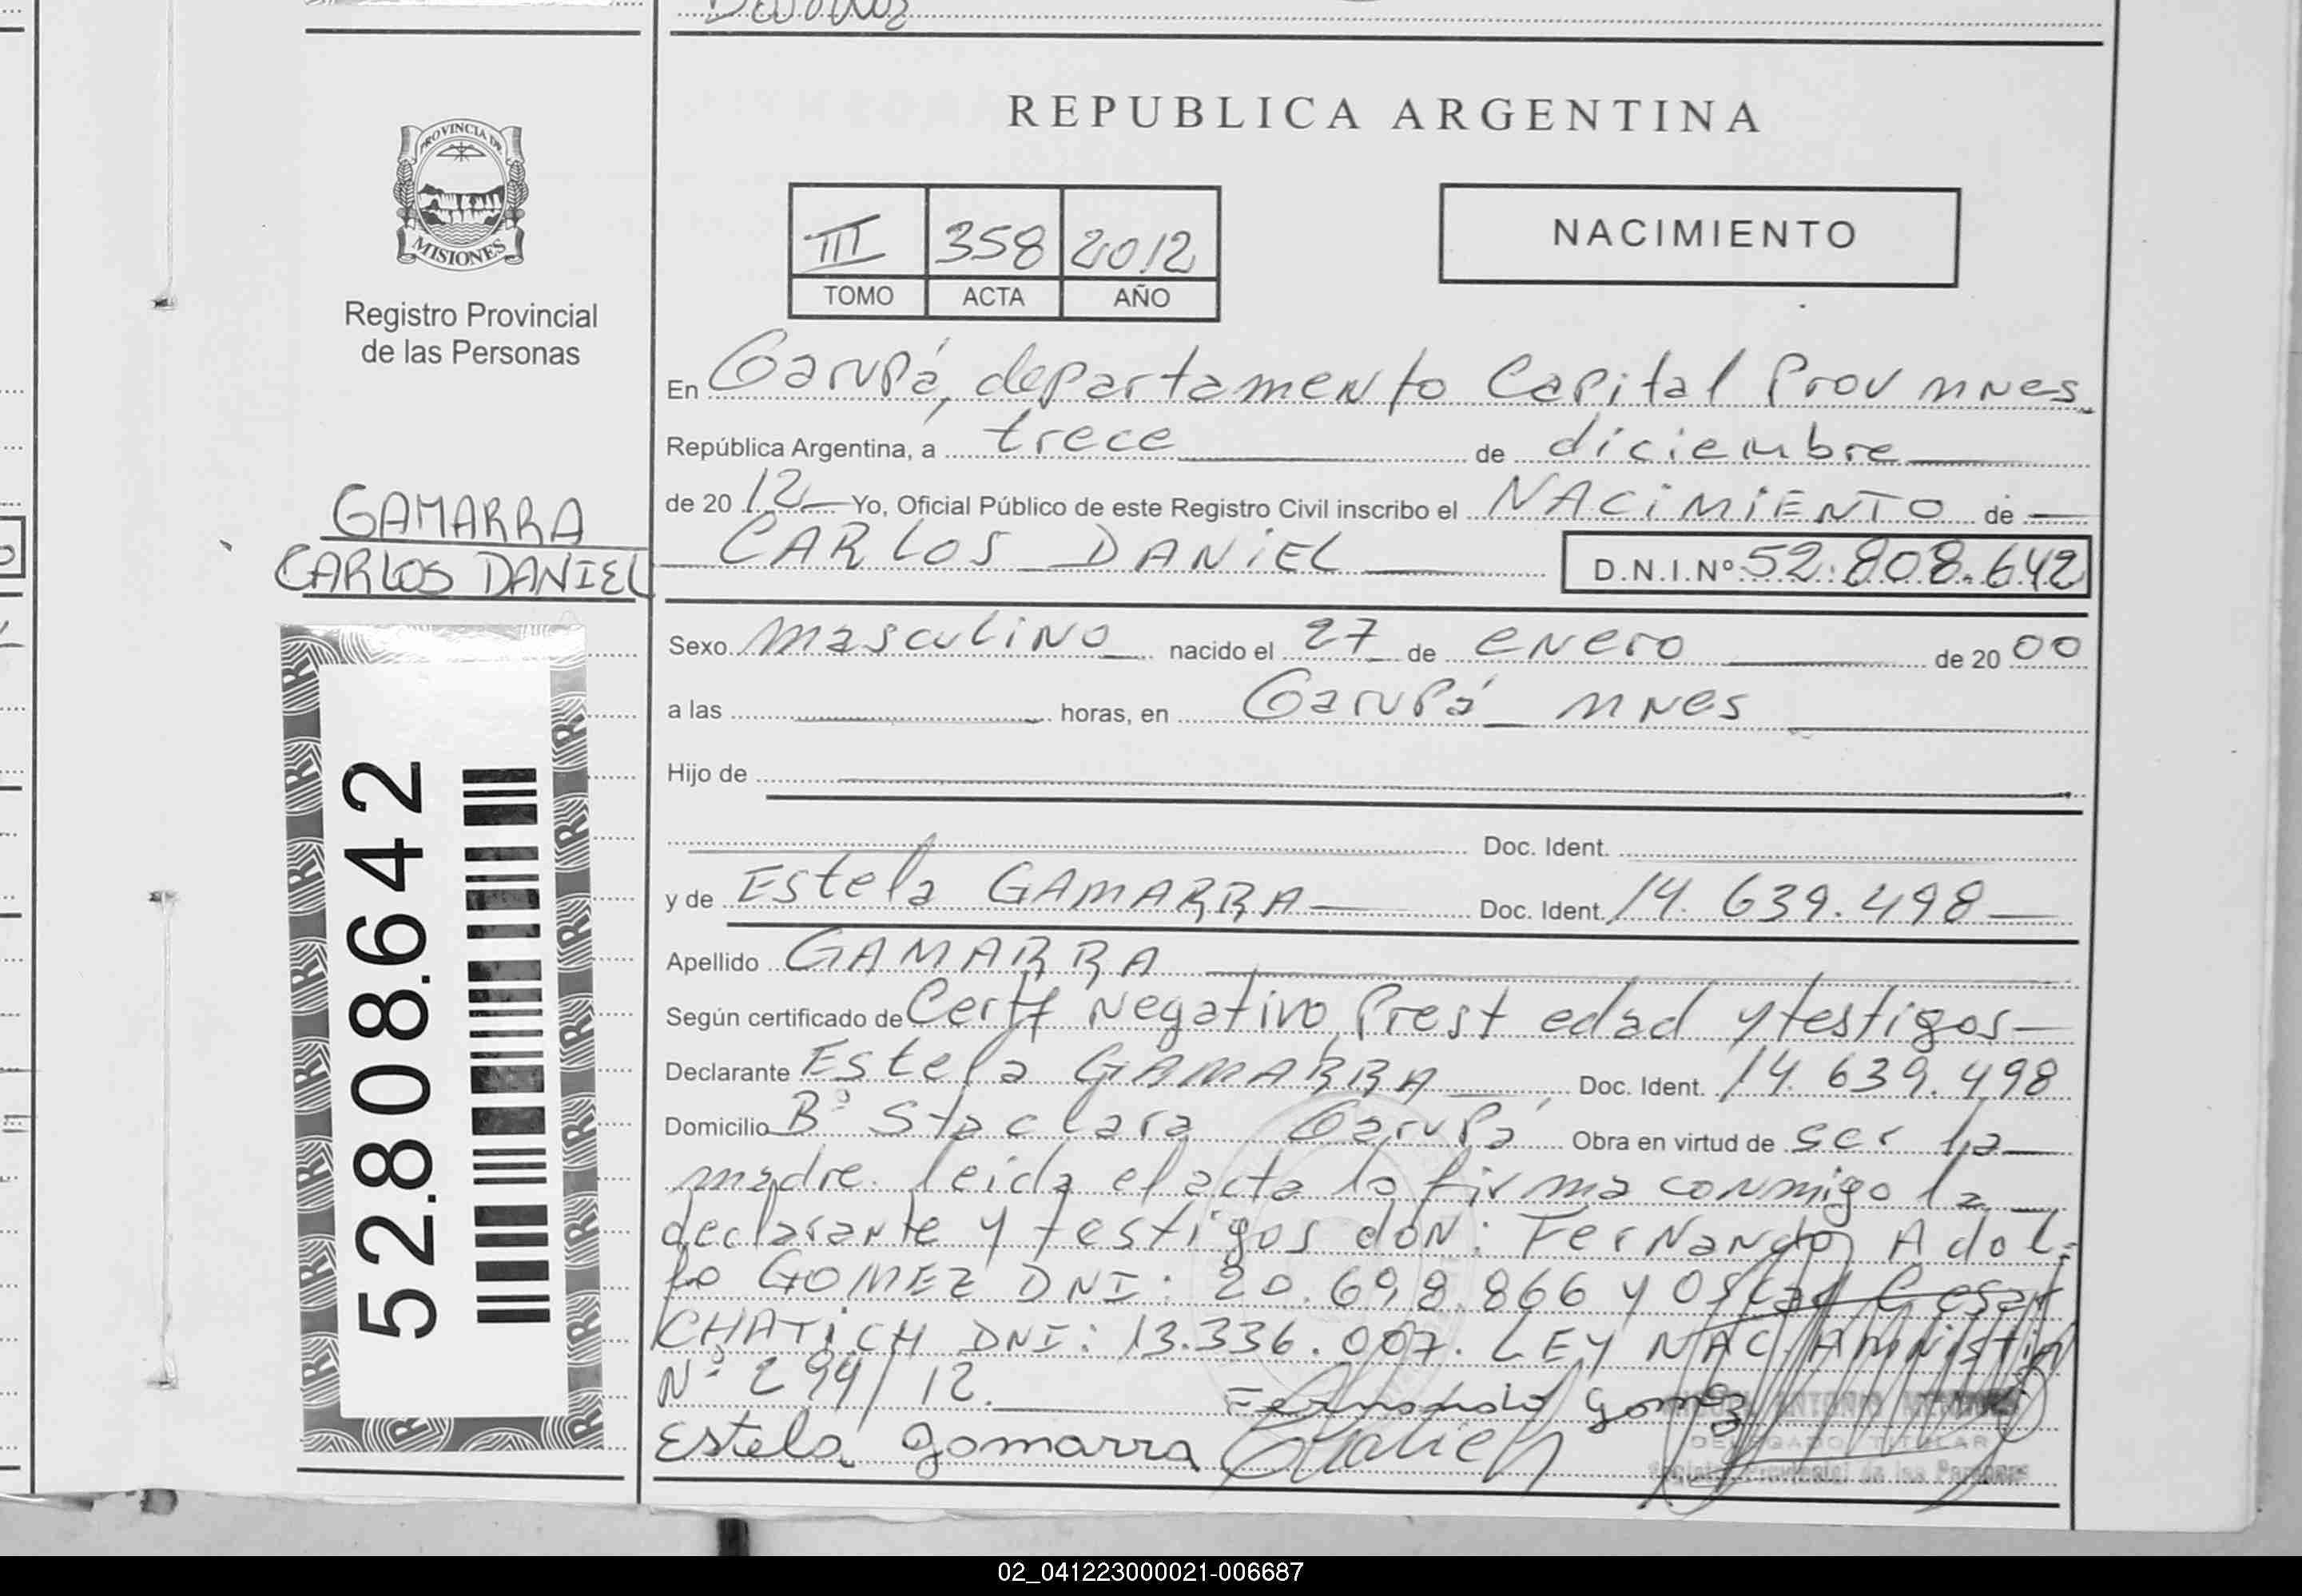 REPUBLICA ARGENTINA
PROVINCIA DE
MISIONES
Registro Provincial
de las Personas
III 358 2012
TOMO ACTA AÑO
NACIMIENTO
En Garupá, departamento Capital Prov Mnes.
República Argentina, a trece de diciembre
de 20 12 Yo, Oficial Público de este Registro Civil inscribo el NACIMIENTO de
GAMARRA
CARLOS DANIEL
CARLOS DANIEL D.N.I.Nº 52.808.642
Sexo masculino nacido el 27 de enero de 20 00
a las horas, en Garupá Mnes
Hijo de
Doc. Ident.
y de Estela GAMARRA Doc. Ident. 14.639.498
Apellido GAMARRA
Según certificado de Certf Negativo, Prest edad y testigos
Declarante Estela GAMARRA Doc. Ident. 14.639.498
Domicilio Bº Sta clara Garupá Obra en virtud de ser la
madre. leida el acta la firma conmigo la
declarante y testigos don: Fernando Adol-
fo GOMEZ DNI: 20.698.866 y Oscar Cesar
CHATICH DNI: 13.336.007. LEY NAC Amnistia
Nº 294/12.
Fernando Gomez
Estela gamarra
ANTONIO
DELEGADO TITULAR
Registro Provincial de las Personas
52.808.642
02_041223000021-006687